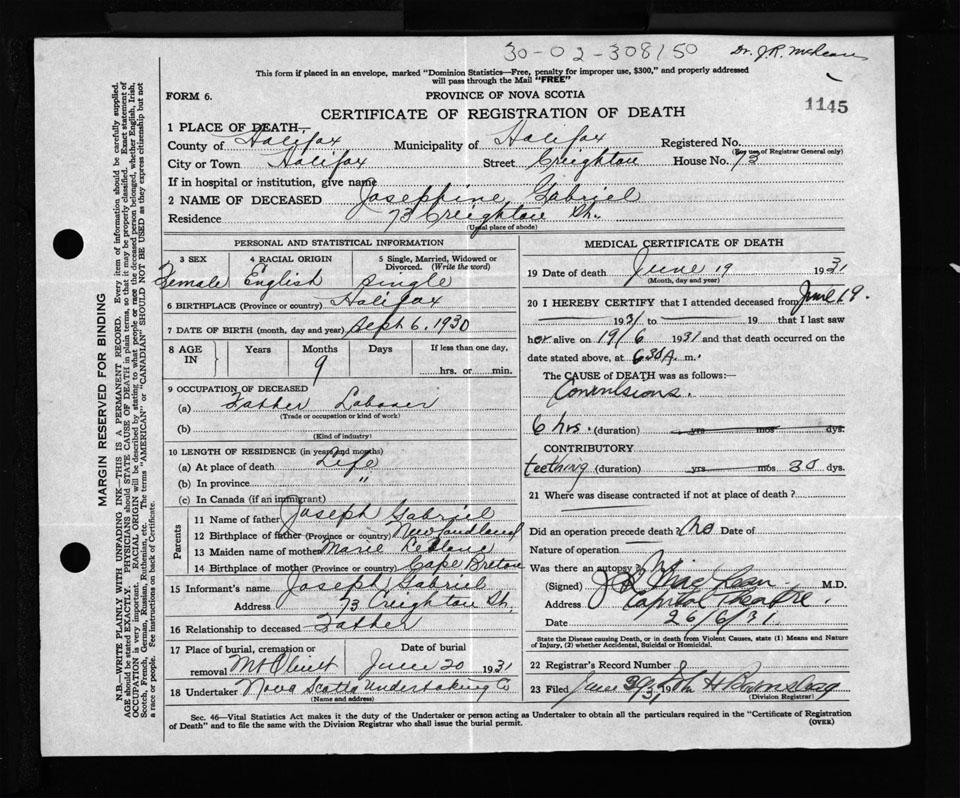 30-02-308150
Dr. J.R. McLean
This form if placed in an envelope, marked "Dominion Statistics—Free, penalty for improper use, $300," and properly addressed
will pass through the Mail "FREE"
FORM 6. PROVINCE OF NOVA SCOTIA 1145
CERTIFICATE OF REGISTRATION OF DEATH
1 PLACE OF DEATH—
County of Halifax Municipality of Halifax Registered No.
(For use of Registrar General only)
City or Town Halifax Street Creighton House No. 73
If in hospital or institution, give name
2 NAME OF DECEASED Josephine Gabriel
Residence 73 Creighton St.
(Usual place of abode)
PERSONAL AND STATISTICAL INFORMATION
3 SEX 4 RACIAL ORIGIN 5 Single, Married, Widowed or
Divorced. (Write the word)
Female English Single
6 BIRTHPLACE (Province or country) Halifax
7 DATE OF BIRTH (month, day and year) Sept 6, 1930
8 AGE IN Years Months Days If less than one day,
9 hrs. or min.
9 OCCUPATION OF DECEASED
(a) Father Laborer
(Trade or occupation or kind of work)
(b)
(Kind of industry)
10 LENGTH OF RESIDENCE (in years and months)
(a) At place of death Life
(b) In province "
(c) In Canada (if an immigrant)
Parents
11 Name of father Joseph Gabriel
12 Birthplace of father (Province or country) Newfoundland
13 Maiden name of mother Marie
14 Birthplace of mother (Province or country) Cape Breton
15 Informant's name Joseph Gabriel
Address 73 Creighton St.
16 Relationship to deceased Father
17 Place of burial, cremation or Date of burial
removal Mt Olivet June 20 1931
18 Undertaker Nova Scotia Undertaking Co
(Name and address)
MEDICAL CERTIFICATE OF DEATH
19 Date of death June 19 1931
(Month, day and year)
20 I HEREBY CERTIFY that I attended deceased from June 19.
1931 to 19 that I last saw
her alive on 19/6 1931 and that death occurred on the
date stated above, at 6 30 A. m.
The CAUSE OF DEATH was as follows:—
Convulsions.
6 hrs. (duration) yrs mos dys.
CONTRIBUTORY
teething (duration) yrs mos 30 dys.
21 Where was disease contracted if not at place of death?
Did an operation precede death? No Date of
Nature of operation
Was there an autopsy? No
(Signed) J R MacLean M.D.
Address Capitol Theatre.
Date 26/6/31.
State the Disease causing Death, or in death from Violent Causes, state (1) Means and Nature
of Injury, (2) whether Accidental, Suicidal or Homicidal.
22 Registrar's Record Number
23 Filed June 30 1931
(Division Registrar)
Sec. 46—Vital Statistics Act makes it the duty of the Undertaker or person acting as Undertaker to obtain all the particulars required in the "Certificate of Registration
of Death" and to file the same with the Division Registrar who shall issue the burial permit. (OVER)
MARGIN RESERVED FOR BINDING
N.B.—WRITE PLAINLY WITH UNFADING INK—THIS IS A PERMANENT RECORD. Every item of information should be carefully supplied.
AGE should be stated EXACTLY. PHYSICIANS should STATE CAUSE OF DEATH in plain terms, so that it may be properly classified. Exact statement of
OCCUPATION is very important. RACIAL ORIGIN will be described by stating to what people or race the deceased person belonged, whether English, Irish,
Scotch, French, German, Russian, Ruthenian, etc. The terms "AMERICAN" or "CANADIAN" SHOULD NOT BE USED as they express citizenship but not
a race or people. See instructions on back of Certificate.